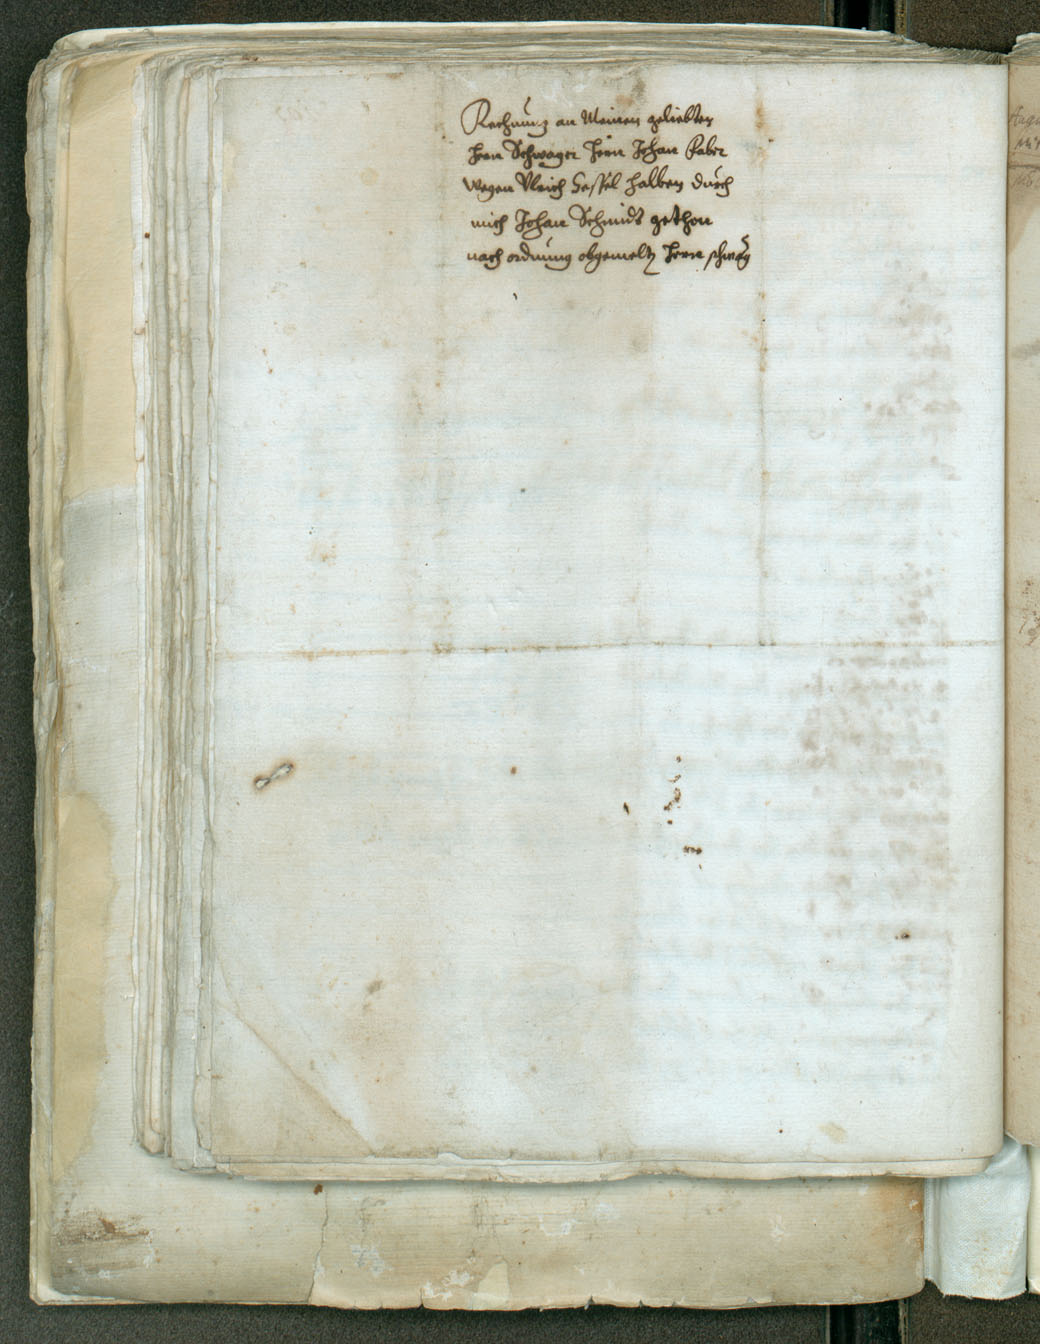 Rechnung an Meinen geliebten
Herrn Schwager Herrn Johan Faber
wegen Ulrich Hessel halben durch
mich Johan Schmidt gethon
nach ordnung obgemelts Herrn schwag